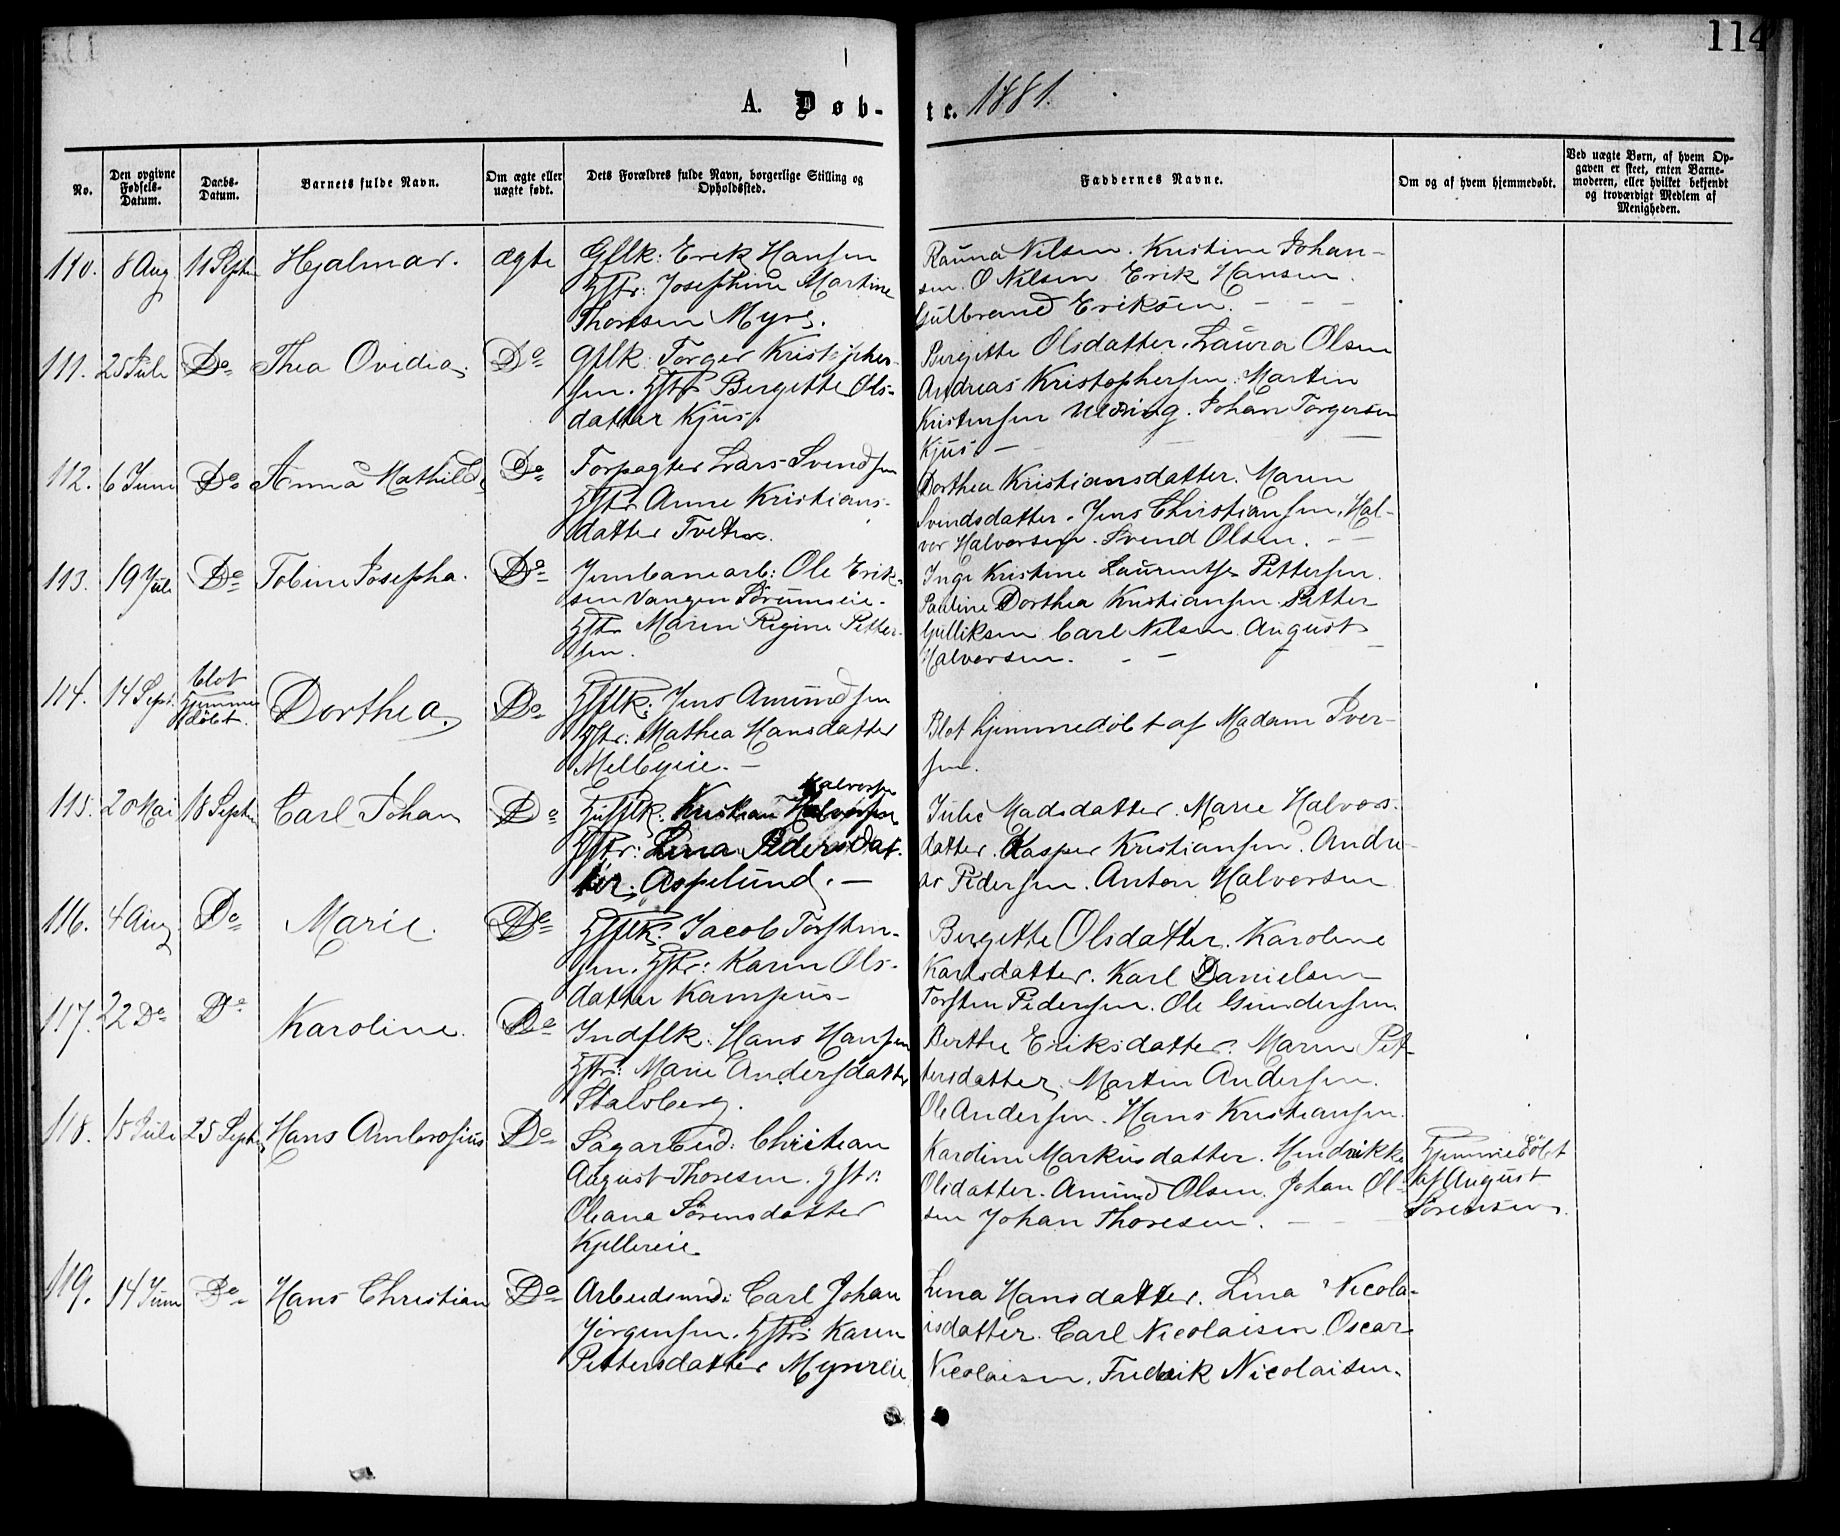 114
A. Døb-
te. 1881.
No.
Den opgivne Fødsels-Datum.
Daabs-Datum.
Barnets fulde Navn.
Om ægte eller uægte født.
Dets Forældres fulde Navn, borgerlige Stilling og Opholdssted.
Faddernes Navne.
Om og af hvem hjemmedøbt.
Ved uægte Børn, af hvem Opgaven er skeet, enten Barnemoderen, eller hvilket bekjendt og troværdigt Medlem af Menigheden.
110. 8 Aug 11 Septr Hjalmar. ægte
Gflk: Erik Hansen
Hstr: Josephine Martine
Thoresen Myre.
Rauna Nilsen. Kristine Johan-
sen. O Nilsen Erik Hansen.
Gulbrand Eriksen. - - -
111. 25 Juli Do Thea Ovidia. Do
Gflk: Torger Kristopher-
sen. Hstr Bergette Ols-
datter Kjus.
Bergitte Olsdatter. Laura Olsen
Andreas Kristophersen. Martin
Kristensen Ulvring. Johan Torgersen
Kjus -
112. 6 Juni Do Anna Mathilde Do
Forpagter Lars Svendsen
Hstr Anne Kristians-
datter Tveten.
Dorthea Kristiansdatter. Maren
Svendsdatter. Jens Christiansen. Hal-
vor Halvorsen. Svend Olsen. - -
113. 19 Juli Do Tobine Josepha. Do
Jernbanearb: Ole Erik-
sen Vangen Sørumeie.
Hstr Maren Regine Petter-
sen.
Inge Kristine Laurentse Pettersen.
Pauline Dorthea Kristiansen. Petter
Gulliksen Carl Nilsen August
Halvorsen. - - - -
114. 14 Sept. blot
hjemme
døbt.
Dorthea. Do
Hsflk: Jens Amundsen
Hstr: Mathea Hansdatter
Melbyeie. -
Blot hjemmedøbt af Madam Iver-
sen.
115. 20 Mai 18 Septr Carl Johan Do
Halvorsen
Husflk. Kristian Halvorsen
Hstr: Lina Pedersdat-
ter. Aspelund. -
Julie Madsdatter. Marie Halvors-
datter. Kasper Kristiansen. Andre-
as Pedersen. Anton Halvorsen
116. 4 Aug Do Marie. Do
Hsflk: Jacob Torsten-
sen. Hstr: Karen Ols-
datter Kampus -
Bergette Olsdatter. Karoline
Karlsdatter. Karl Danielsen
Torsten Pedersen. Ole Gundersen.
117. 22 Do Do Karoline. Do
Indflk: Hans Hansen
Hstr: Marie Andersdatter
Stalsberg.
Berthe Eriksdatter. Maren Pet-
tersdatter. Martin Andersen.
Ole Andersen. Hans Kristiansen.
118. 15 Juli 25 Septr Hans Ambrosius Do
Sagarbeid: Christian
August Thoresen. Hstr:
Oleana Sørensdatter
Kjellereie
Karoline Markusdatter. Hendrikke
Olsdatter. Amund Olsen. Johan Ol-
sen Johan Thoresen. - - -
Hjemmedøbt
af August
Sørensen.
119. 14 Juni Do Hans Christian Do
Arbeidsmd: Carl Johan
Jørgensen. Hstr: Karen
Pettersdatter Myreeie
Lena Hansdatter. Lina Nicola-
isdatter. Carl Nicolaisen Oscar
Nicolaisen. Fredrik Nicolaisen.